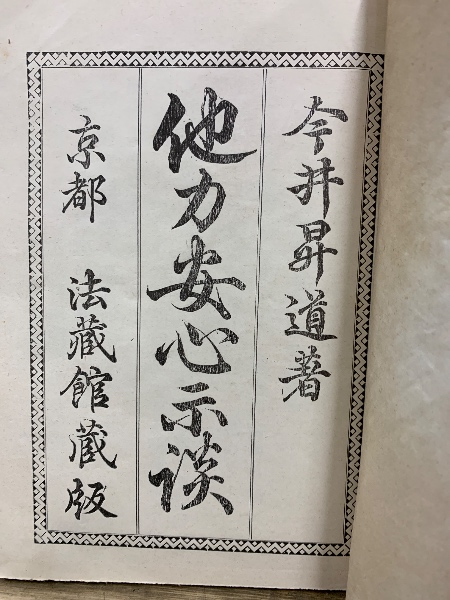 今井昇道著
他力安心示談
京都 法藏館蔵版